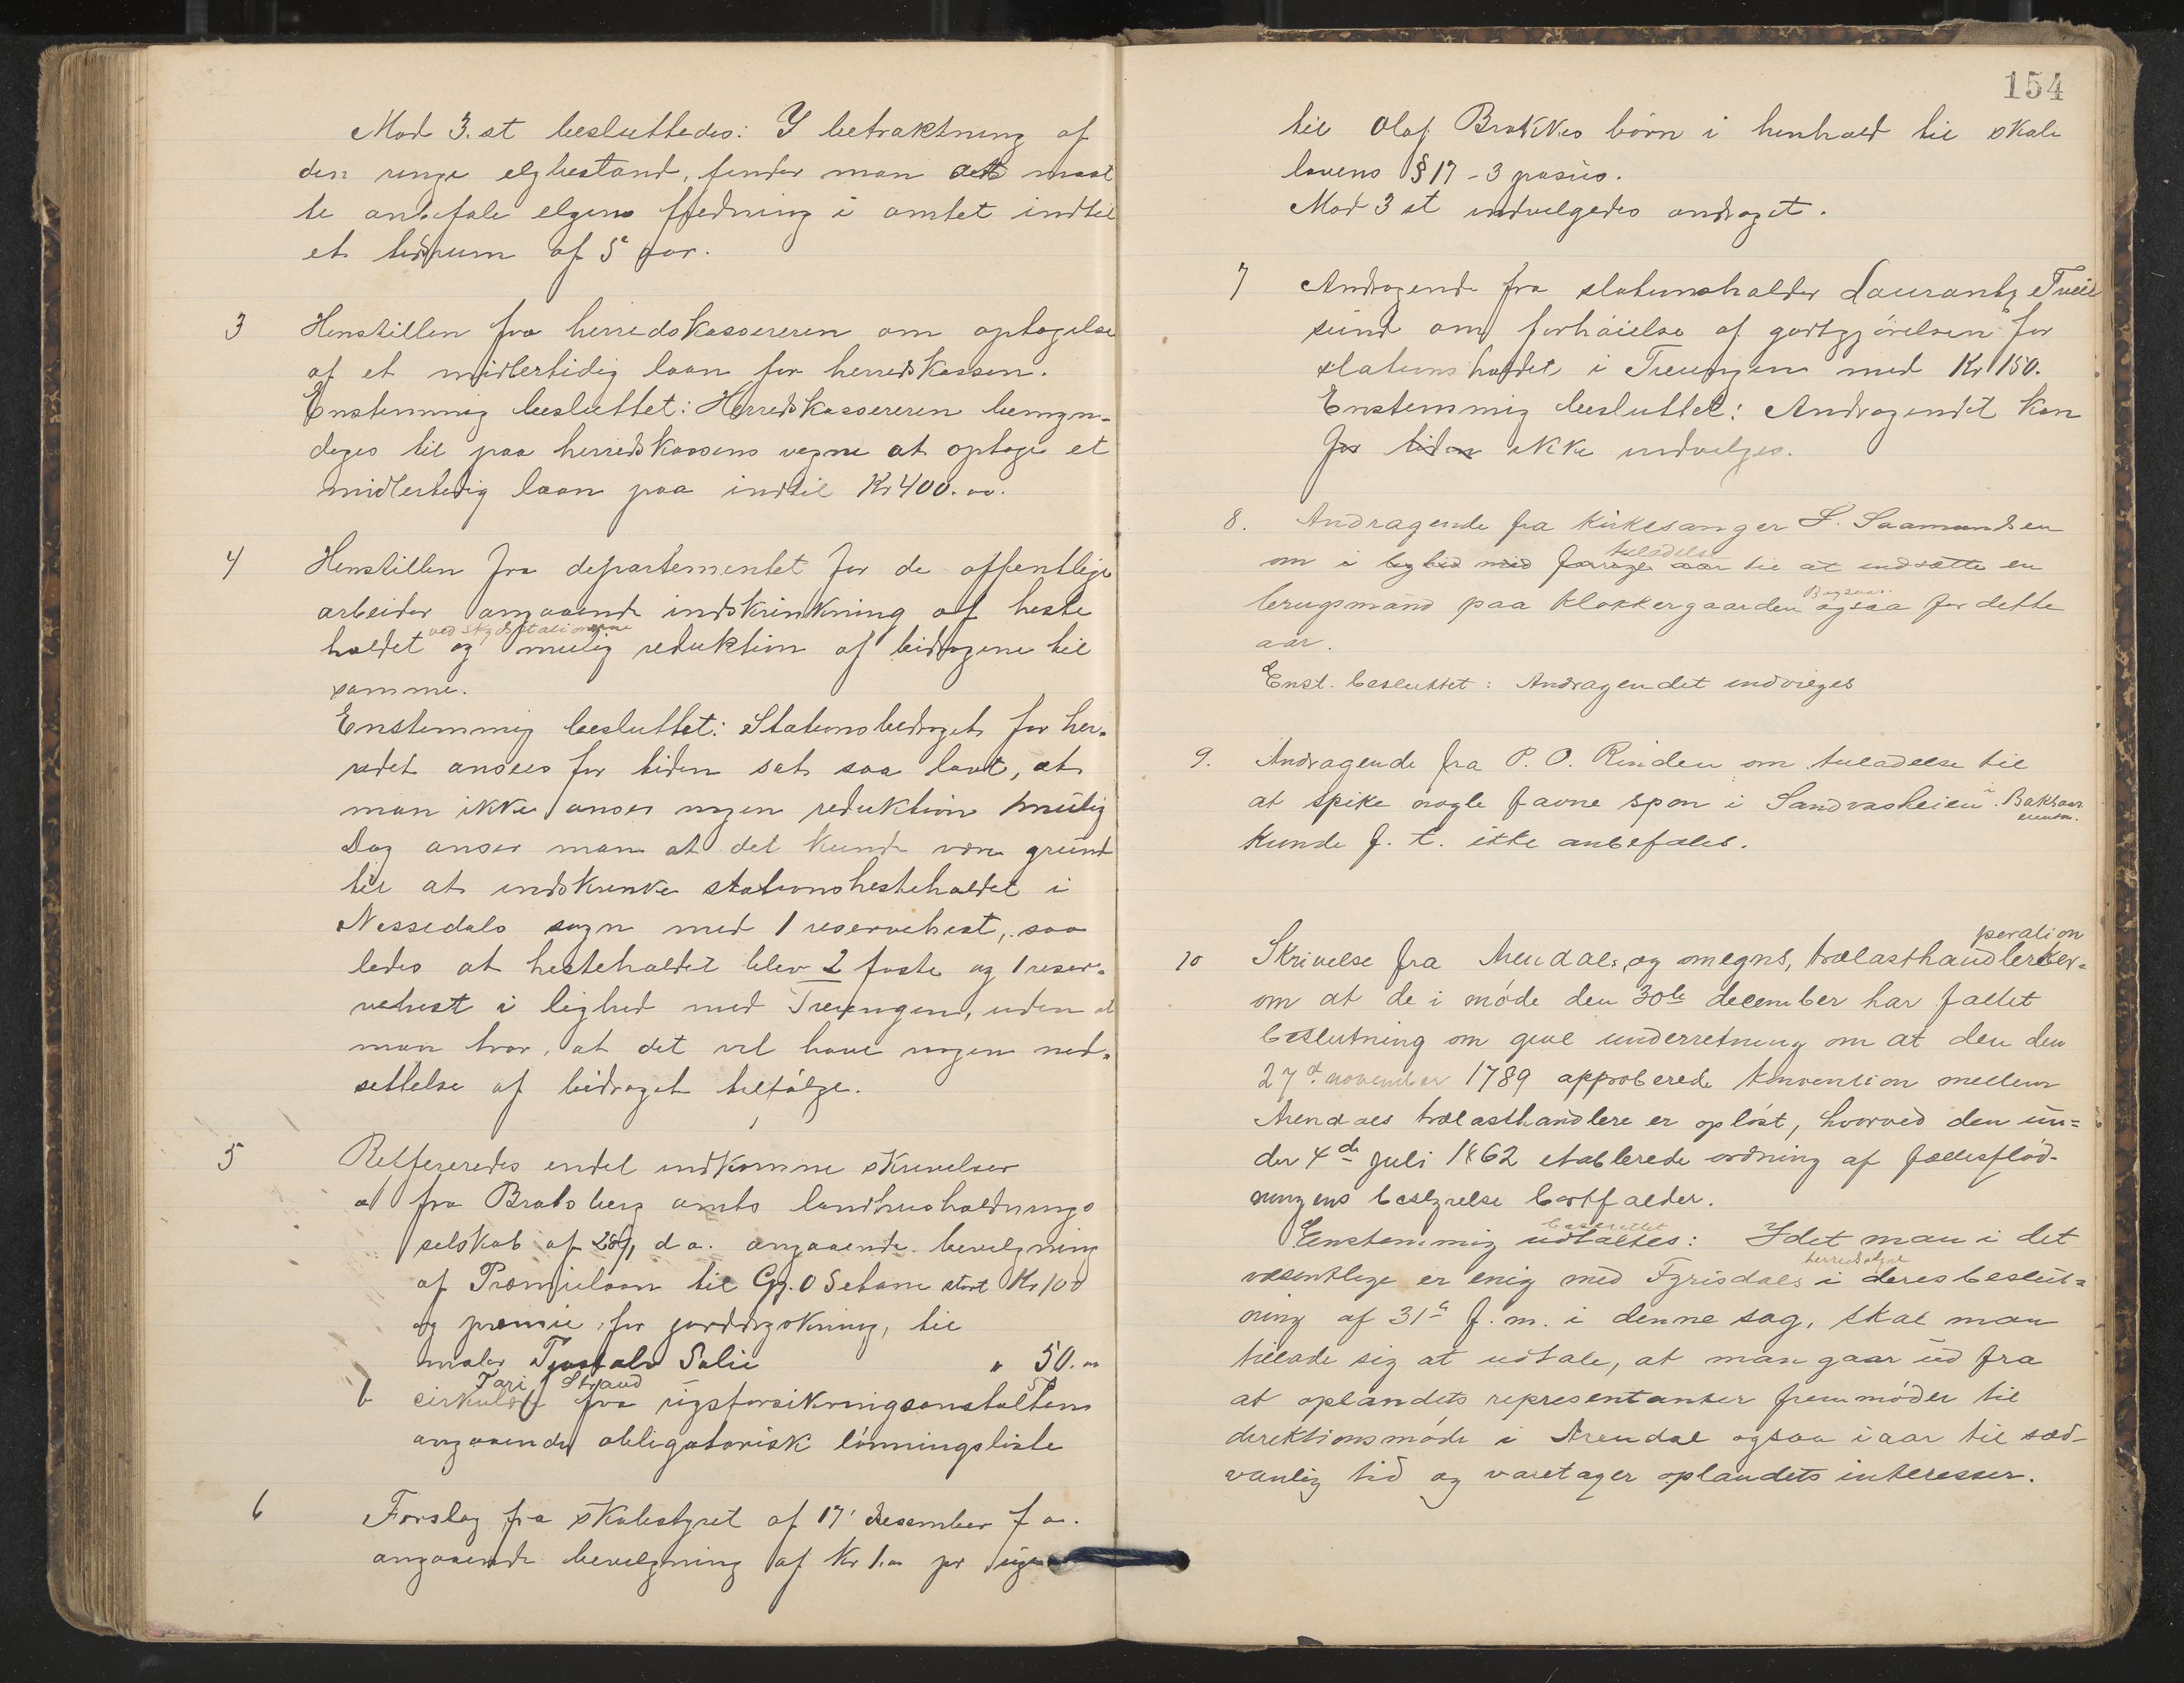 Mod 3. st besluttedes: I betraktning af
den ringe elgbestand, finder man at maat
te anbefale elgens fredning i amtet indtil
et tidsrum af 5 aar.
3 Henstillen fra herredskassereren om optagelse
af et midlertidig laan for herredskassen.
Enstemmig besluttet: Herredskassereren bemyn-
diges til paa herredskassens vegne at optage et
midlertidig laan paa indtil Kr 400.00.
4 Henstillen fra departementet for de offentlige
arbeider angaaende indskrinkning af heste
holdet ved skydsstationerne og mulig reduktion af bidragene til
samme.
Enstemmig besluttet: Stationsbidraget for her-
redet ansees for tiden sat saa lavt, at
man ikke anser nogen reduktion mulig
Dog anser man at det kunde være grund
til at indskrenke stationshesteholdet i
Nissedals sogn med 1 reservehest, saa
ledes at hesteholdet blev 2 faste og 1 reser-
vehest i lighed med Treungen, uden at
man tror, at det vil have nogen ned-
settelse af bidraget tilfølge.
5 Refereredes endel indkomne skrivelser
a fra Bratsberg amts landhusholdnings
selskab af d a. angaaende bevilgning
af Præmielaan til O Setane stort Kr 100
og premie for jorddyrkning, til
maler Salie " 50.00
Tari Strand
b cirkulære fra rigsforsikringsanstalten
angaaende obligatorisk lønningsliste
6 Forslag fra skolestyret af 17 desember f a.
angaaende bevilgning af Kr 1.00 pr uge
154
til Olaf Brokkes børn i henhold til skole
lovens § 17 - 3 passus.
Mod 3 st indvilgedes andraget.
7 Andragende fra stationsholder Laurantz Tveit
sund om forhøielse af godtgjørelsen for
stationsholdet i Treungen med Kr 150.
Enstemmig besluttet: Andragendet kan
for tiden ikke indvilges.
8. Andragende fra kirkesanger S. Saamundsen
om i lighed med forrige aar tilladelse til at indsætte en
brugsmand paa klokkergaarden ogsaa for dette
aar.
Enst. besluttet: Andragendet indvilges
9. Andragende fra P. O. Rinden om tilladelse til
at spike nogle favne spon i Sandvasheien
kunde f. t. ikke anbefales.
10 Skrivelse fra Arendals og omegns, trælasthandlerkor-
peration
om at de i møde den 30te december har fattet
beslutning om give underretning om at den den
27d november 1789 approberede konvention mellem
Arendals trælasthandlere er opløst, hvorved den un-
der 4de juli 1862 etablerede ordning af fællesflød-
ningens bestyrelse bortfalder.
Enstemmig udtaltes: besluttet Idet man i det
væsentlige er enig med Fyrisdals herredsstyre i deres beslut-
ning af 31te f. m. i denne sag, skal man
tillade sig at udtale, at man gaar ud fra
at oplandets representanter fremmøder til
direktionsmøde i Arendal ogsaa iaar til sæd-
vanlig tid og varetager oplandets interesser.